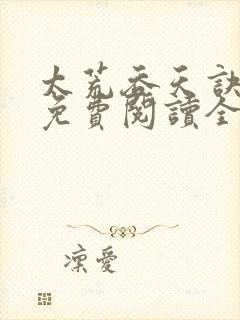 太荒吞天訣
免費閱讀全
凜愛